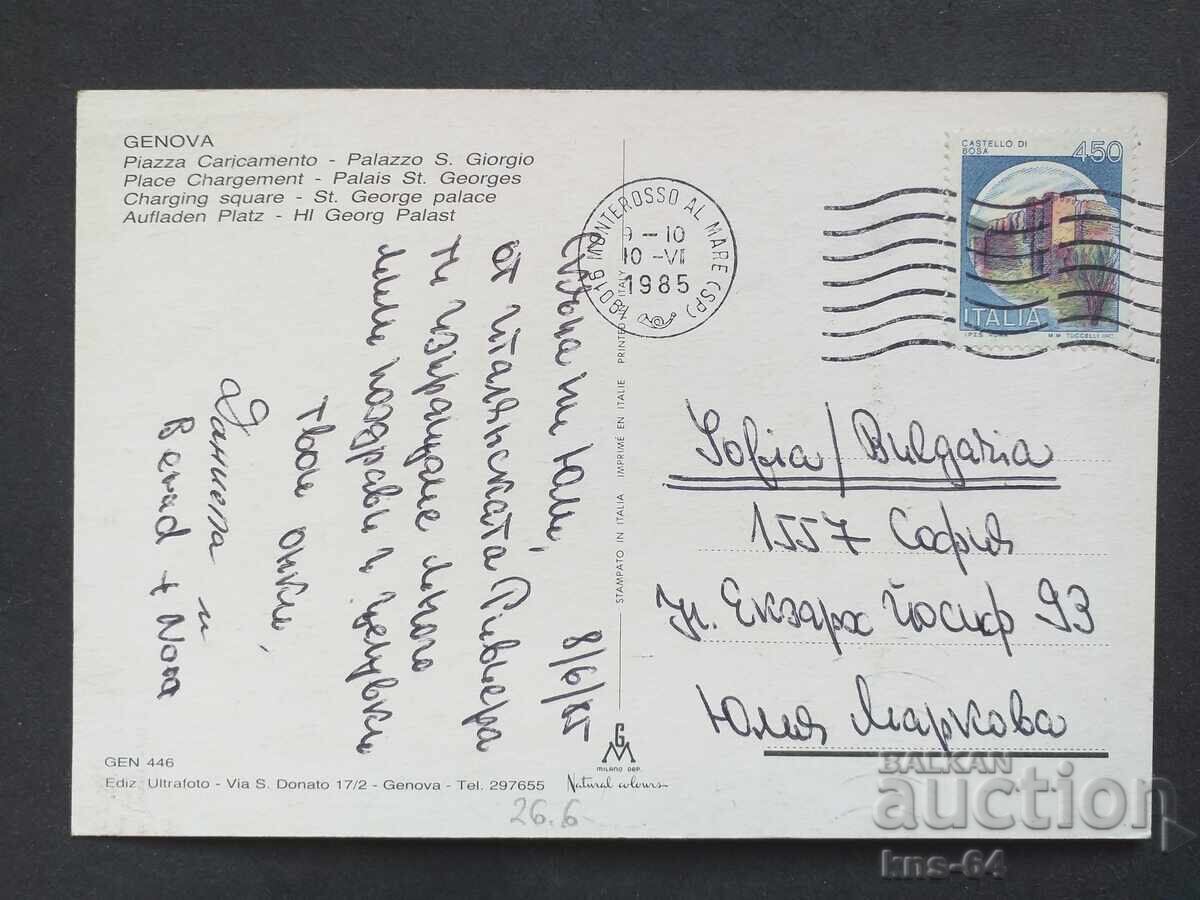 GENOVA
Piazza Caricamento - Palazzo S. Giorgio
Place Chargement - Palais St. Georges
Charging square - St. George palace
Aufladen Platz - HI Georg Palast
8/6/85
Юли,
от Италянската Ривиера
ти изпращаме много
мили поздрави и целувки
твои
Даниела и
Bernd + Nora
GEN 446
Ediz. Ultrafoto - Via S. Donato 17/2 - Genova - Tel. 297655
26.6
STAMPATO IN ITALIA IMPRIMÉ EN ITALIE PRINTED IN ITALY
GM
MILANO DEP.
Natural colours
MONTEROSSO AL MARE (SP)
9-10
10-VI
1985
CASTELLO DI
BOSA
450
ITALIA
Sofia/Bulgaria
1557 София
ул. Екзарх Йосиф 93
Юлия Маркова
BALKAN
auction
kns-64